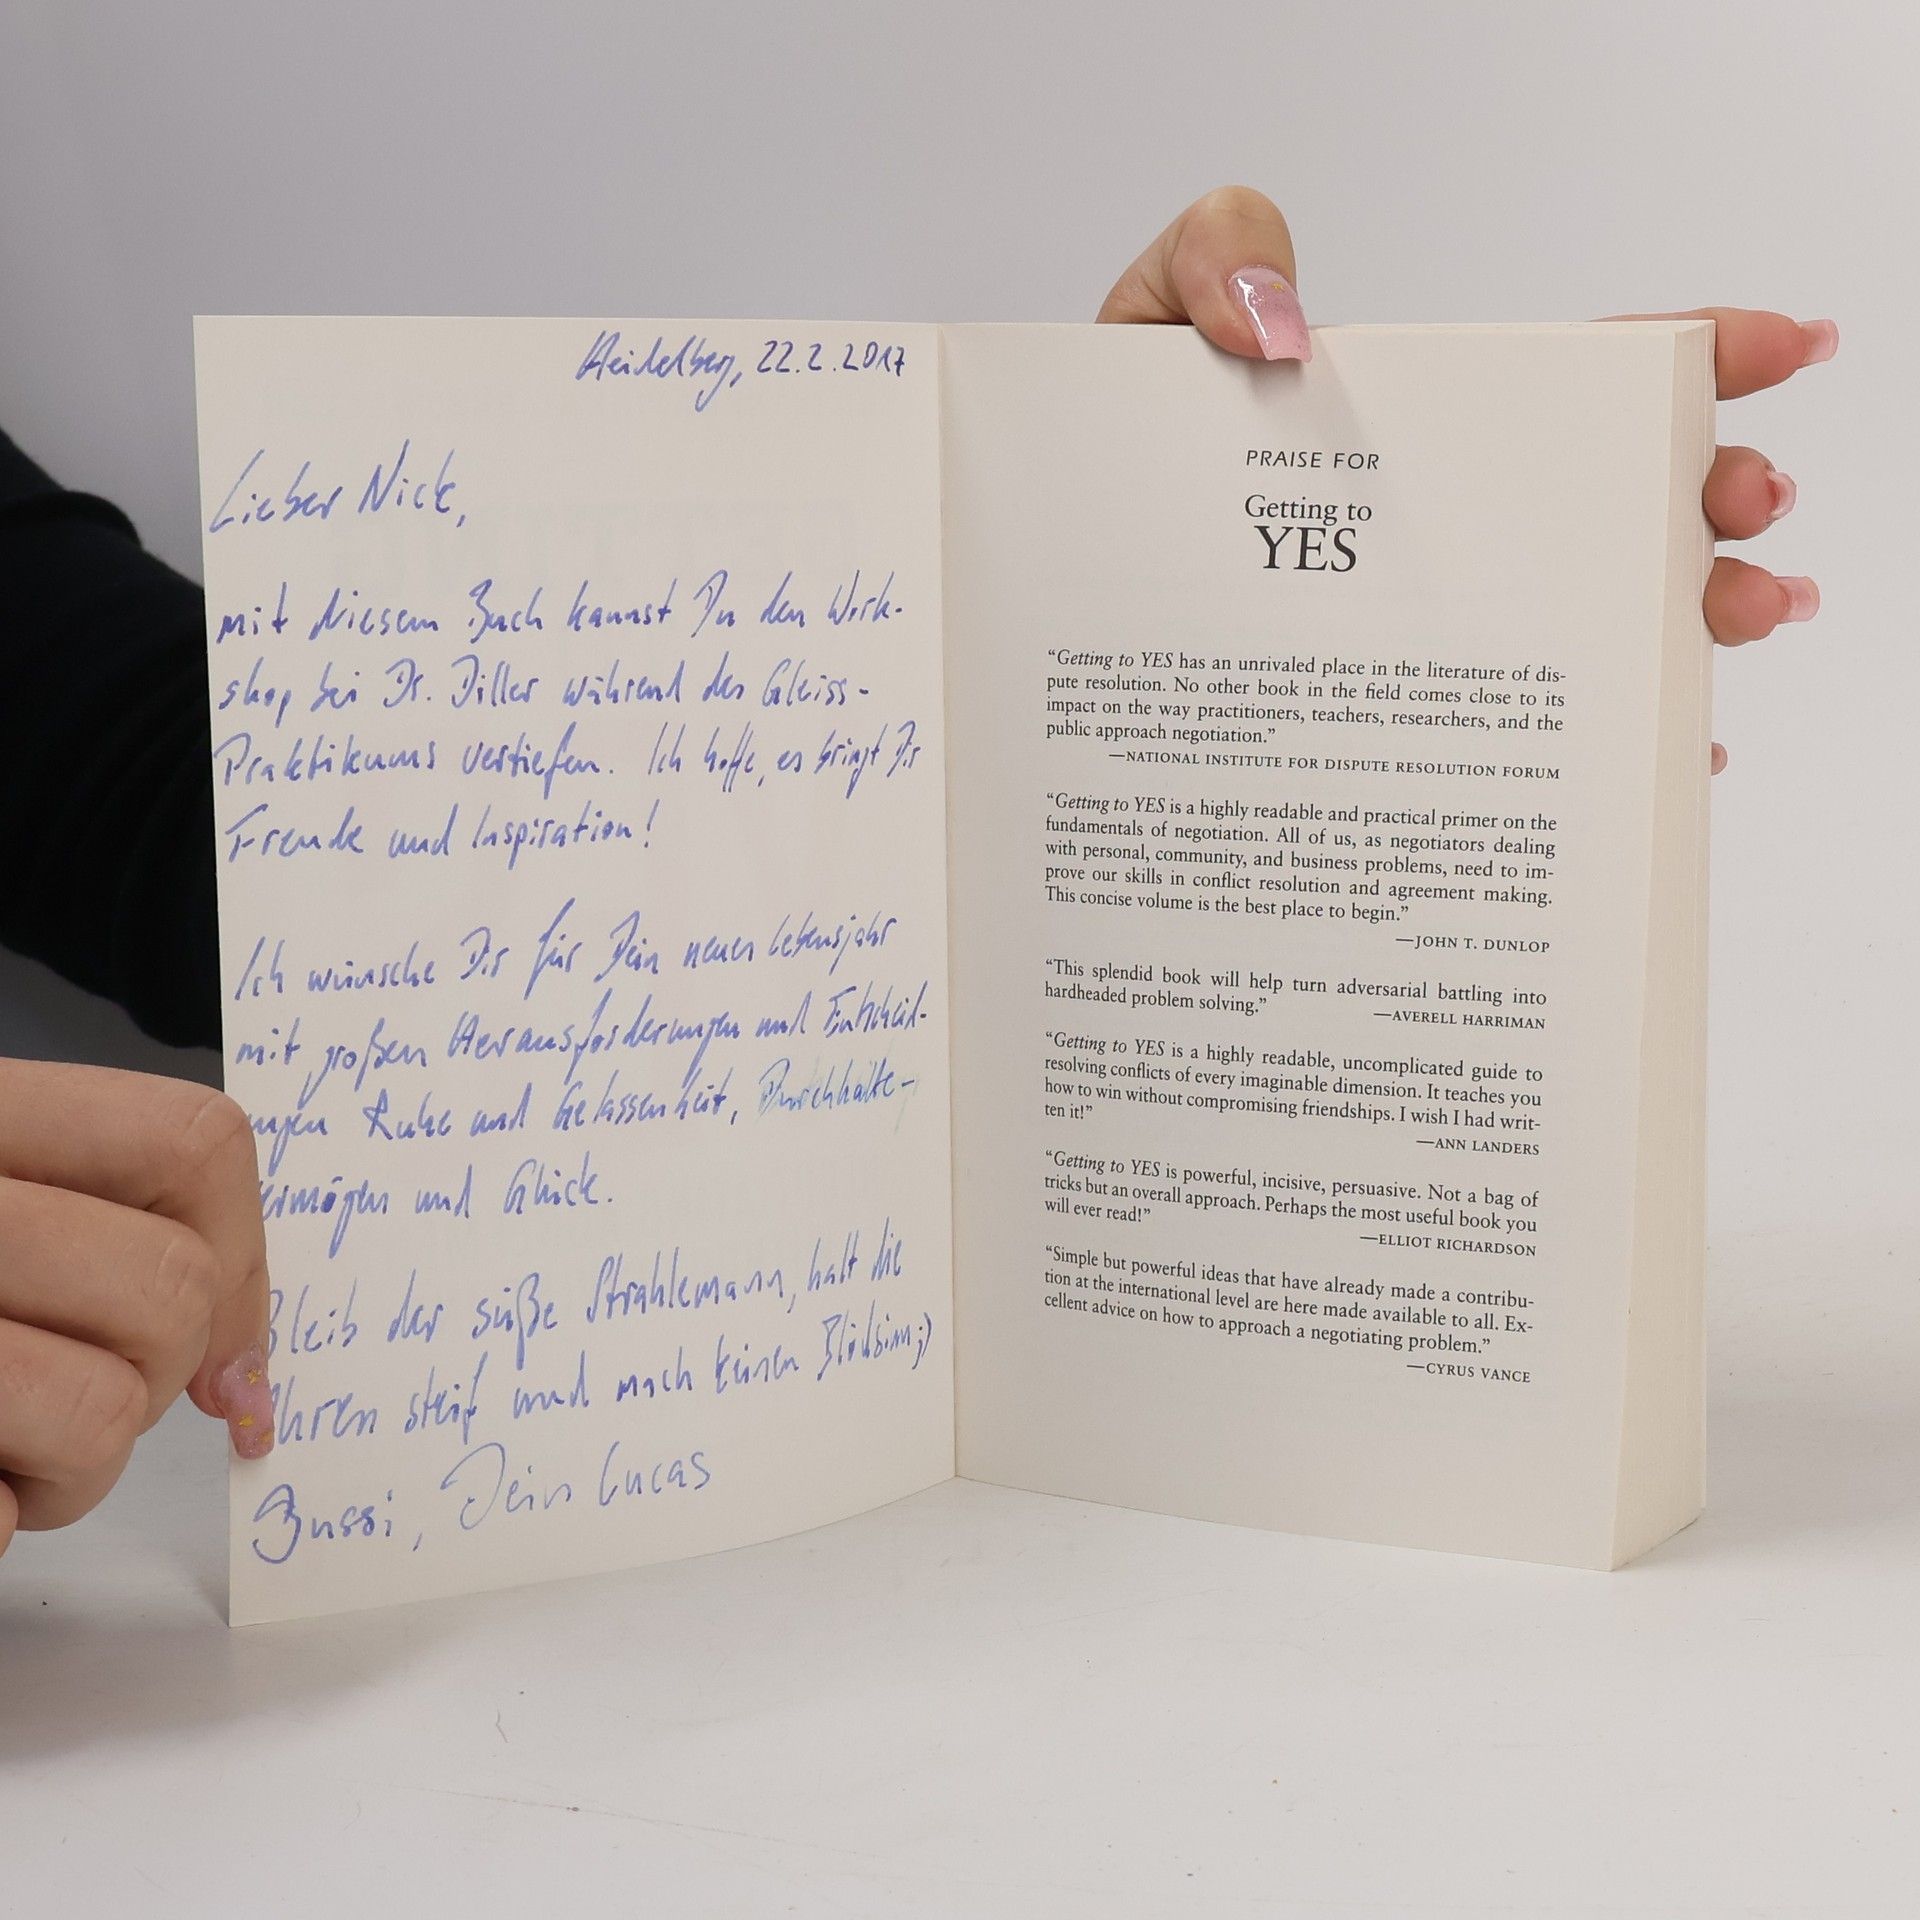 Heidelberg, 22.2.2017
Lieber Nick,
mit diesem Buch kannst Du den Work-
shop bei Dr. Diller während des Gleiss-
Praktikums vertiefen. Ich hoffe, es bringt Dir
Freude und Inspiration!
Ich wünsche Dir für Dein neues Lebensjahr
mit großen Herausforderungen und Entscheid-
ungen Ruhe und Gelassenheit, Durchhalte-
vermögen und Glück.
Bleib der süße Strahlemann, halt die
Ohren steif und mach keinen Blödsinn ;)
Bussi, Dein Lucas
PRAISE FOR
Getting to
YES
“Getting to YES has an unrivaled place in the literature of dis-
pute resolution. No other book in the field comes close to its
impact on the way practitioners, teachers, researchers, and the
public approach negotiation.”
—NATIONAL INSTITUTE FOR DISPUTE RESOLUTION FORUM
“Getting to YES is a highly readable and practical primer on the
fundamentals of negotiation. All of us, as negotiators dealing
with personal, community, and business problems, need to im-
prove our skills in conflict resolution and agreement making.
This concise volume is the best place to begin.”
—JOHN T. DUNLOP
“This splendid book will help turn adversarial battling into
hardheaded problem solving.”
—AVERELL HARRIMAN
“Getting to YES is a highly readable, uncomplicated guide to
resolving conflicts of every imaginable dimension. It teaches you
how to win without compromising friendships. I wish I had writ-
ten it!”
—ANN LANDERS
“Getting to YES is powerful, incisive, persuasive. Not a bag of
tricks but an overall approach. Perhaps the most useful book you
will ever read!”
—ELLIOT RICHARDSON
“Simple but powerful ideas that have already made a contribu-
tion at the international level are here made available to all. Ex-
cellent advice on how to approach a negotiating problem.”
—CYRUS VANCE